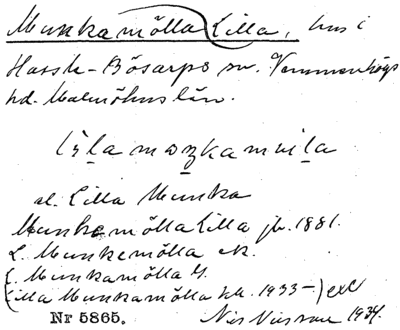 Munkamölla Lilla, hus i
Hassle-Bösarps sn. Vemmenhögs
hd. Malmöhus län.
al. Lilla Munka
Munkemölla Lilla jb. 1881.
L. Munkemölla ek.
L. Munkamölla G.
(Lilla Munkamölla 1933-)
Nr 5865.
1934.